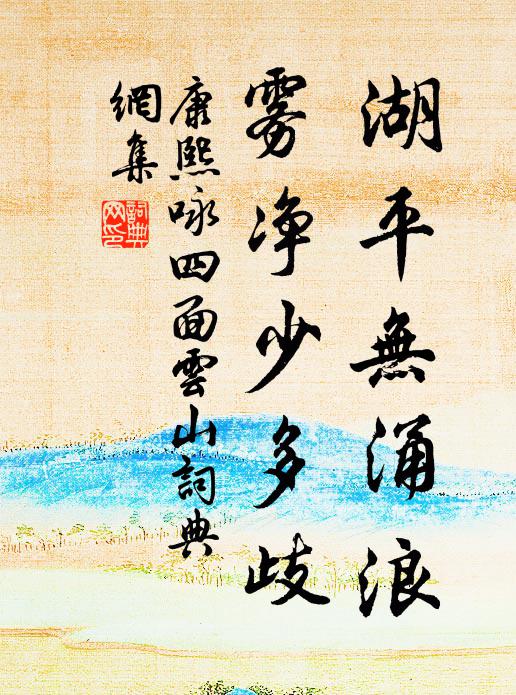 湖平無涌浪
雾净少多歧
康熙咏四面雲山詞典
網集
詞典
网印